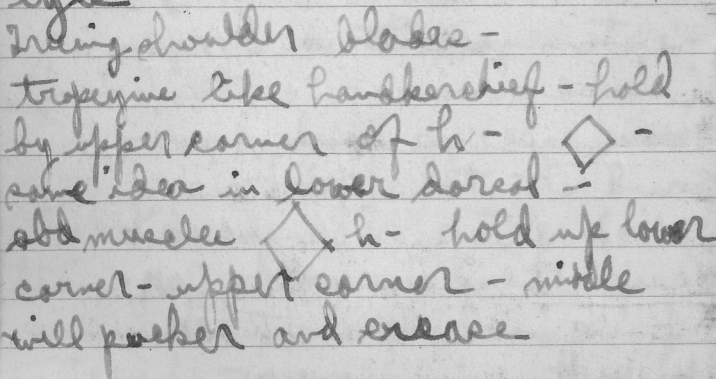 shoulder blades -
trapezius like handkerchief - hold
by upper corner of h - ◇ -
same idea in lower dorsal -
abd muscles ◇ h - hold up lower
corner - upper corner - middle
will pucker and crease